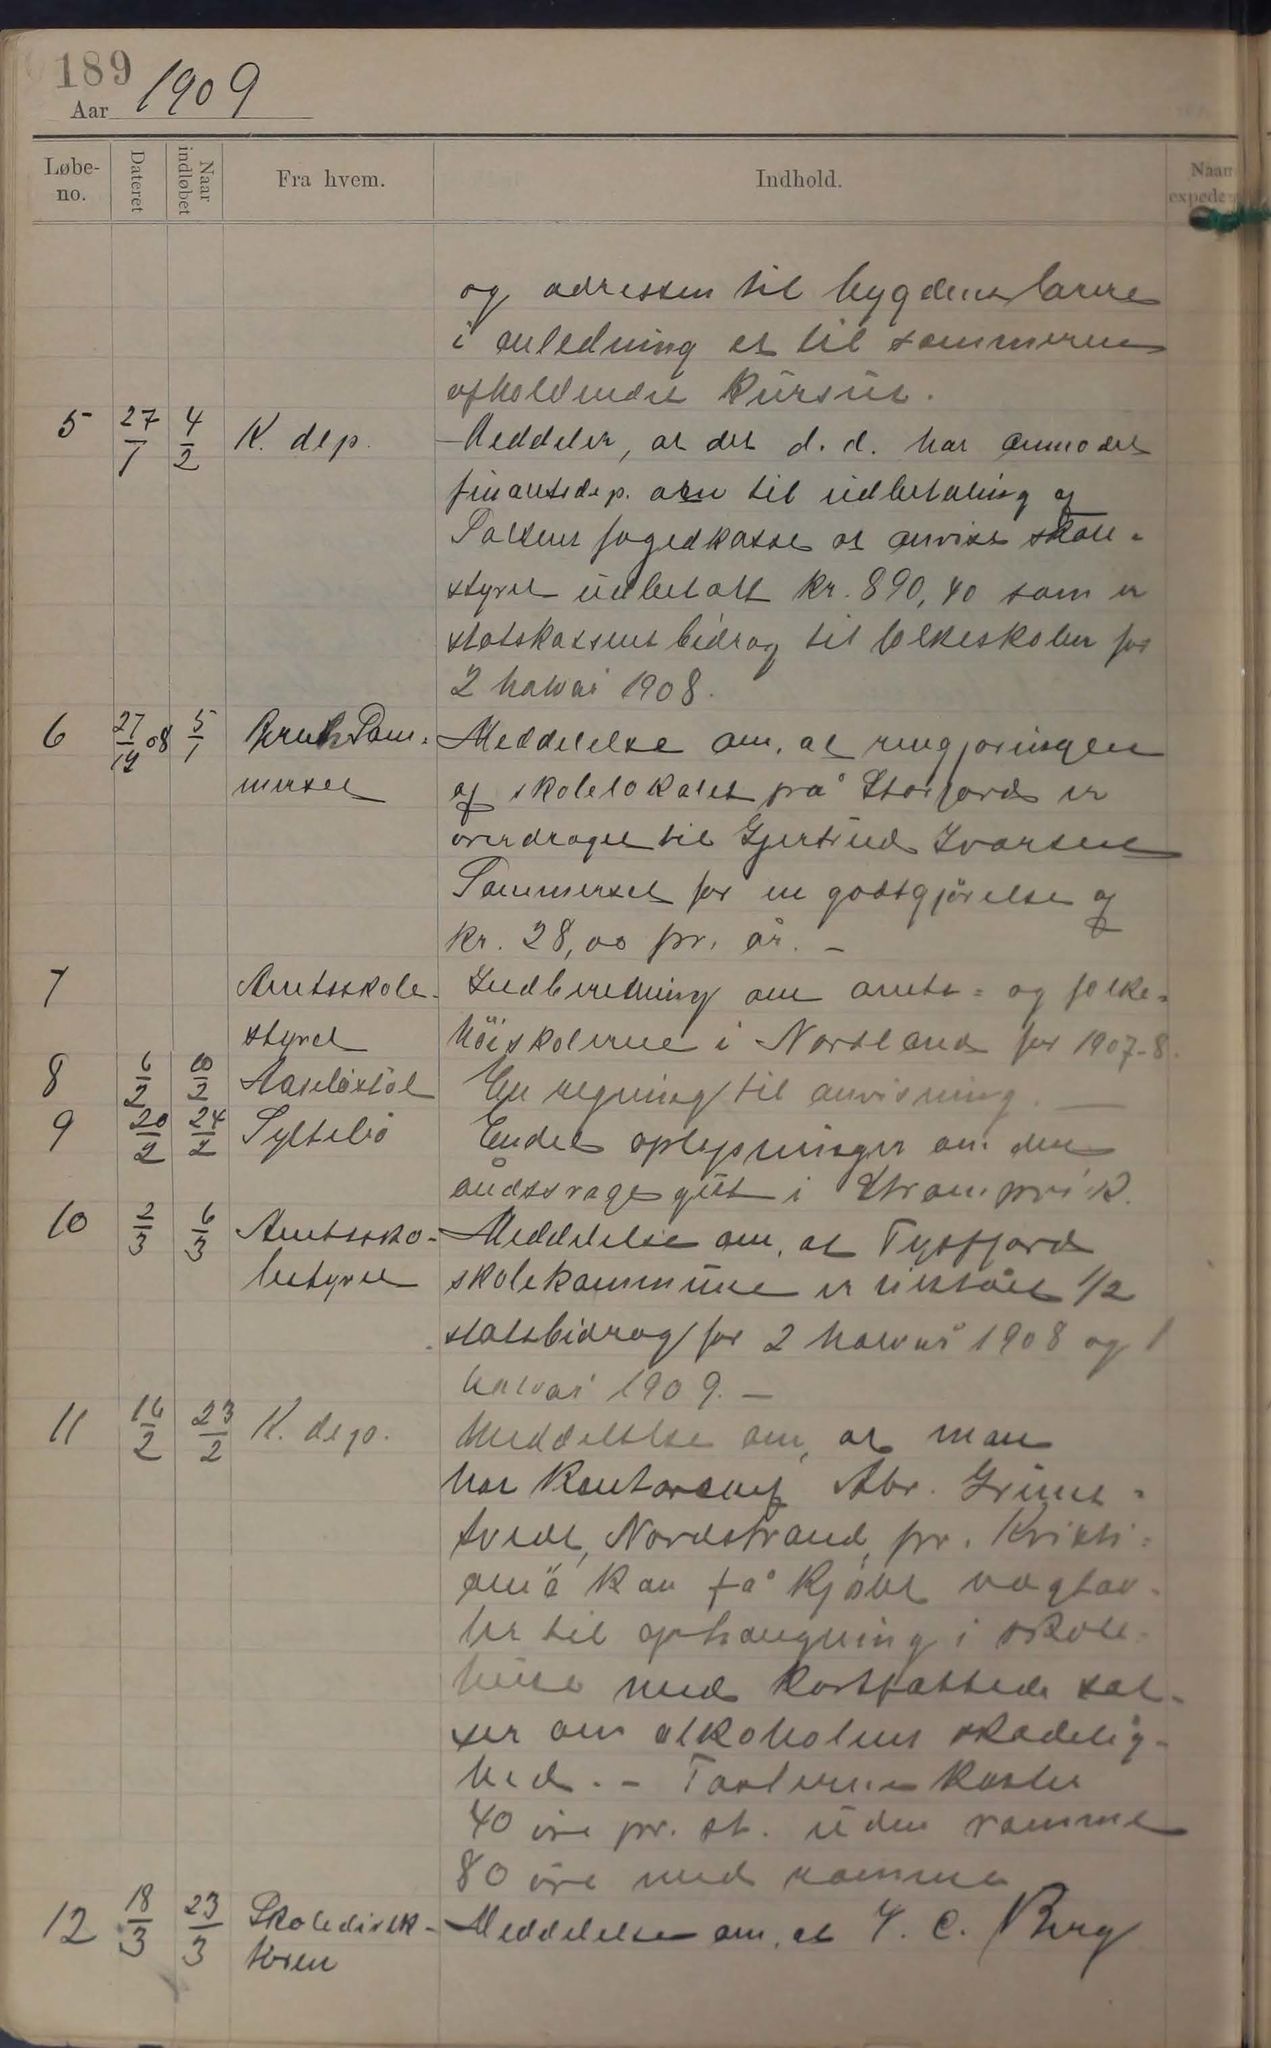 189
Aar 1909
Løbe-no. Dateret Naar indløbet Fra hvem. Indhold. Naar expeder
og adressen til bygdens lærere
i anledning et til sommeren
afholdendet kursus.
5 27/1 4/2 K. dep. Meddeler, at det d. d. har anmodet
finantsdep. om til udbetaling af
Saltens fogedkasse at anvise skole-
styret udbetalt kr. 890,40 som er
statskassens bidrag til folkeskolen for
2 halvår 1908.
6 27/12 08 5/1 Som- Meddelelse om, at rengjøringen
merset af skolelokalet på Storfjord er
overdraget til Gjertrud Ivarsen
Sommerset for en godtgjörelse af
kr. 28,00 pr. år. —
7 Amtsskole- Indberetning om amts- og folke-
styret höiskolerne i Nordland for 1907-8.
8 6/2 10/2 En regning til anvisning. —
9 20/2 24/2 Syltebö Endel oplysninger om den
åndssvage gut i
10 2/3 6/3 Amtssko- Meddelelse om, at Tysfjord
lestyret skolekommune er tilstået 1/2
statsbidrag for 2 halvår 1908 og 1
halvår 1909. —
11 16/2 23/2 K. dep. Meddelelse om, at man
hos Kontorchef Abr. Grims-
tvedt, Nordstrand, pr. Kristi-
ania kan få kjöbt vægtav-
ler til ophængning i skole-
huse med kortfattede sæt-
ser om alkoholens skadelig-
hed. - Tavlerne koster
40 öre pr. st. uden ramme
80 öre med ramme
12 18/3 23/3 Skoledirek- Meddelelse om, at C. Berg
tören